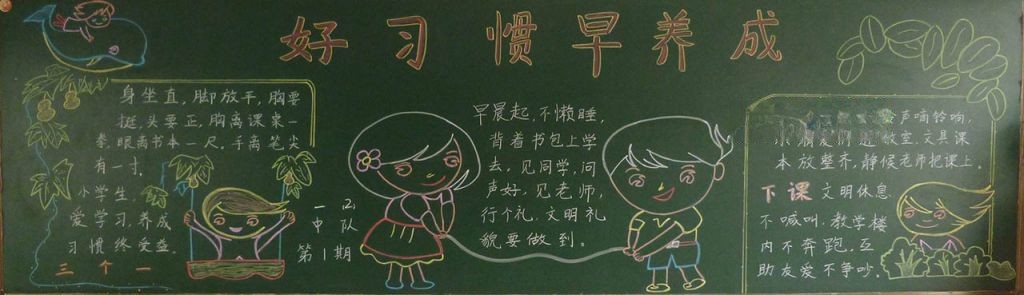 好习惯早养成
身坐直,脚放平,胸要
挺,头要正,胸离课桌一
拳,眼离书本一尺,手离笔尖
有一寸。
小学生,
爱学习,养成
习惯终受益。
三个一
一 2
中队
第1期
早晨起,不懒睡,
背着书包上学
去,见同学,问
声好,见老师,
行个礼,文明礼
貌要做到。
声响铃响,
小朋友们进教室,文具课
本放整齐,静候老师把课上。
下课 文明休息
不喊叫,教学楼
内不奔跑,互
助友爱不争吵。